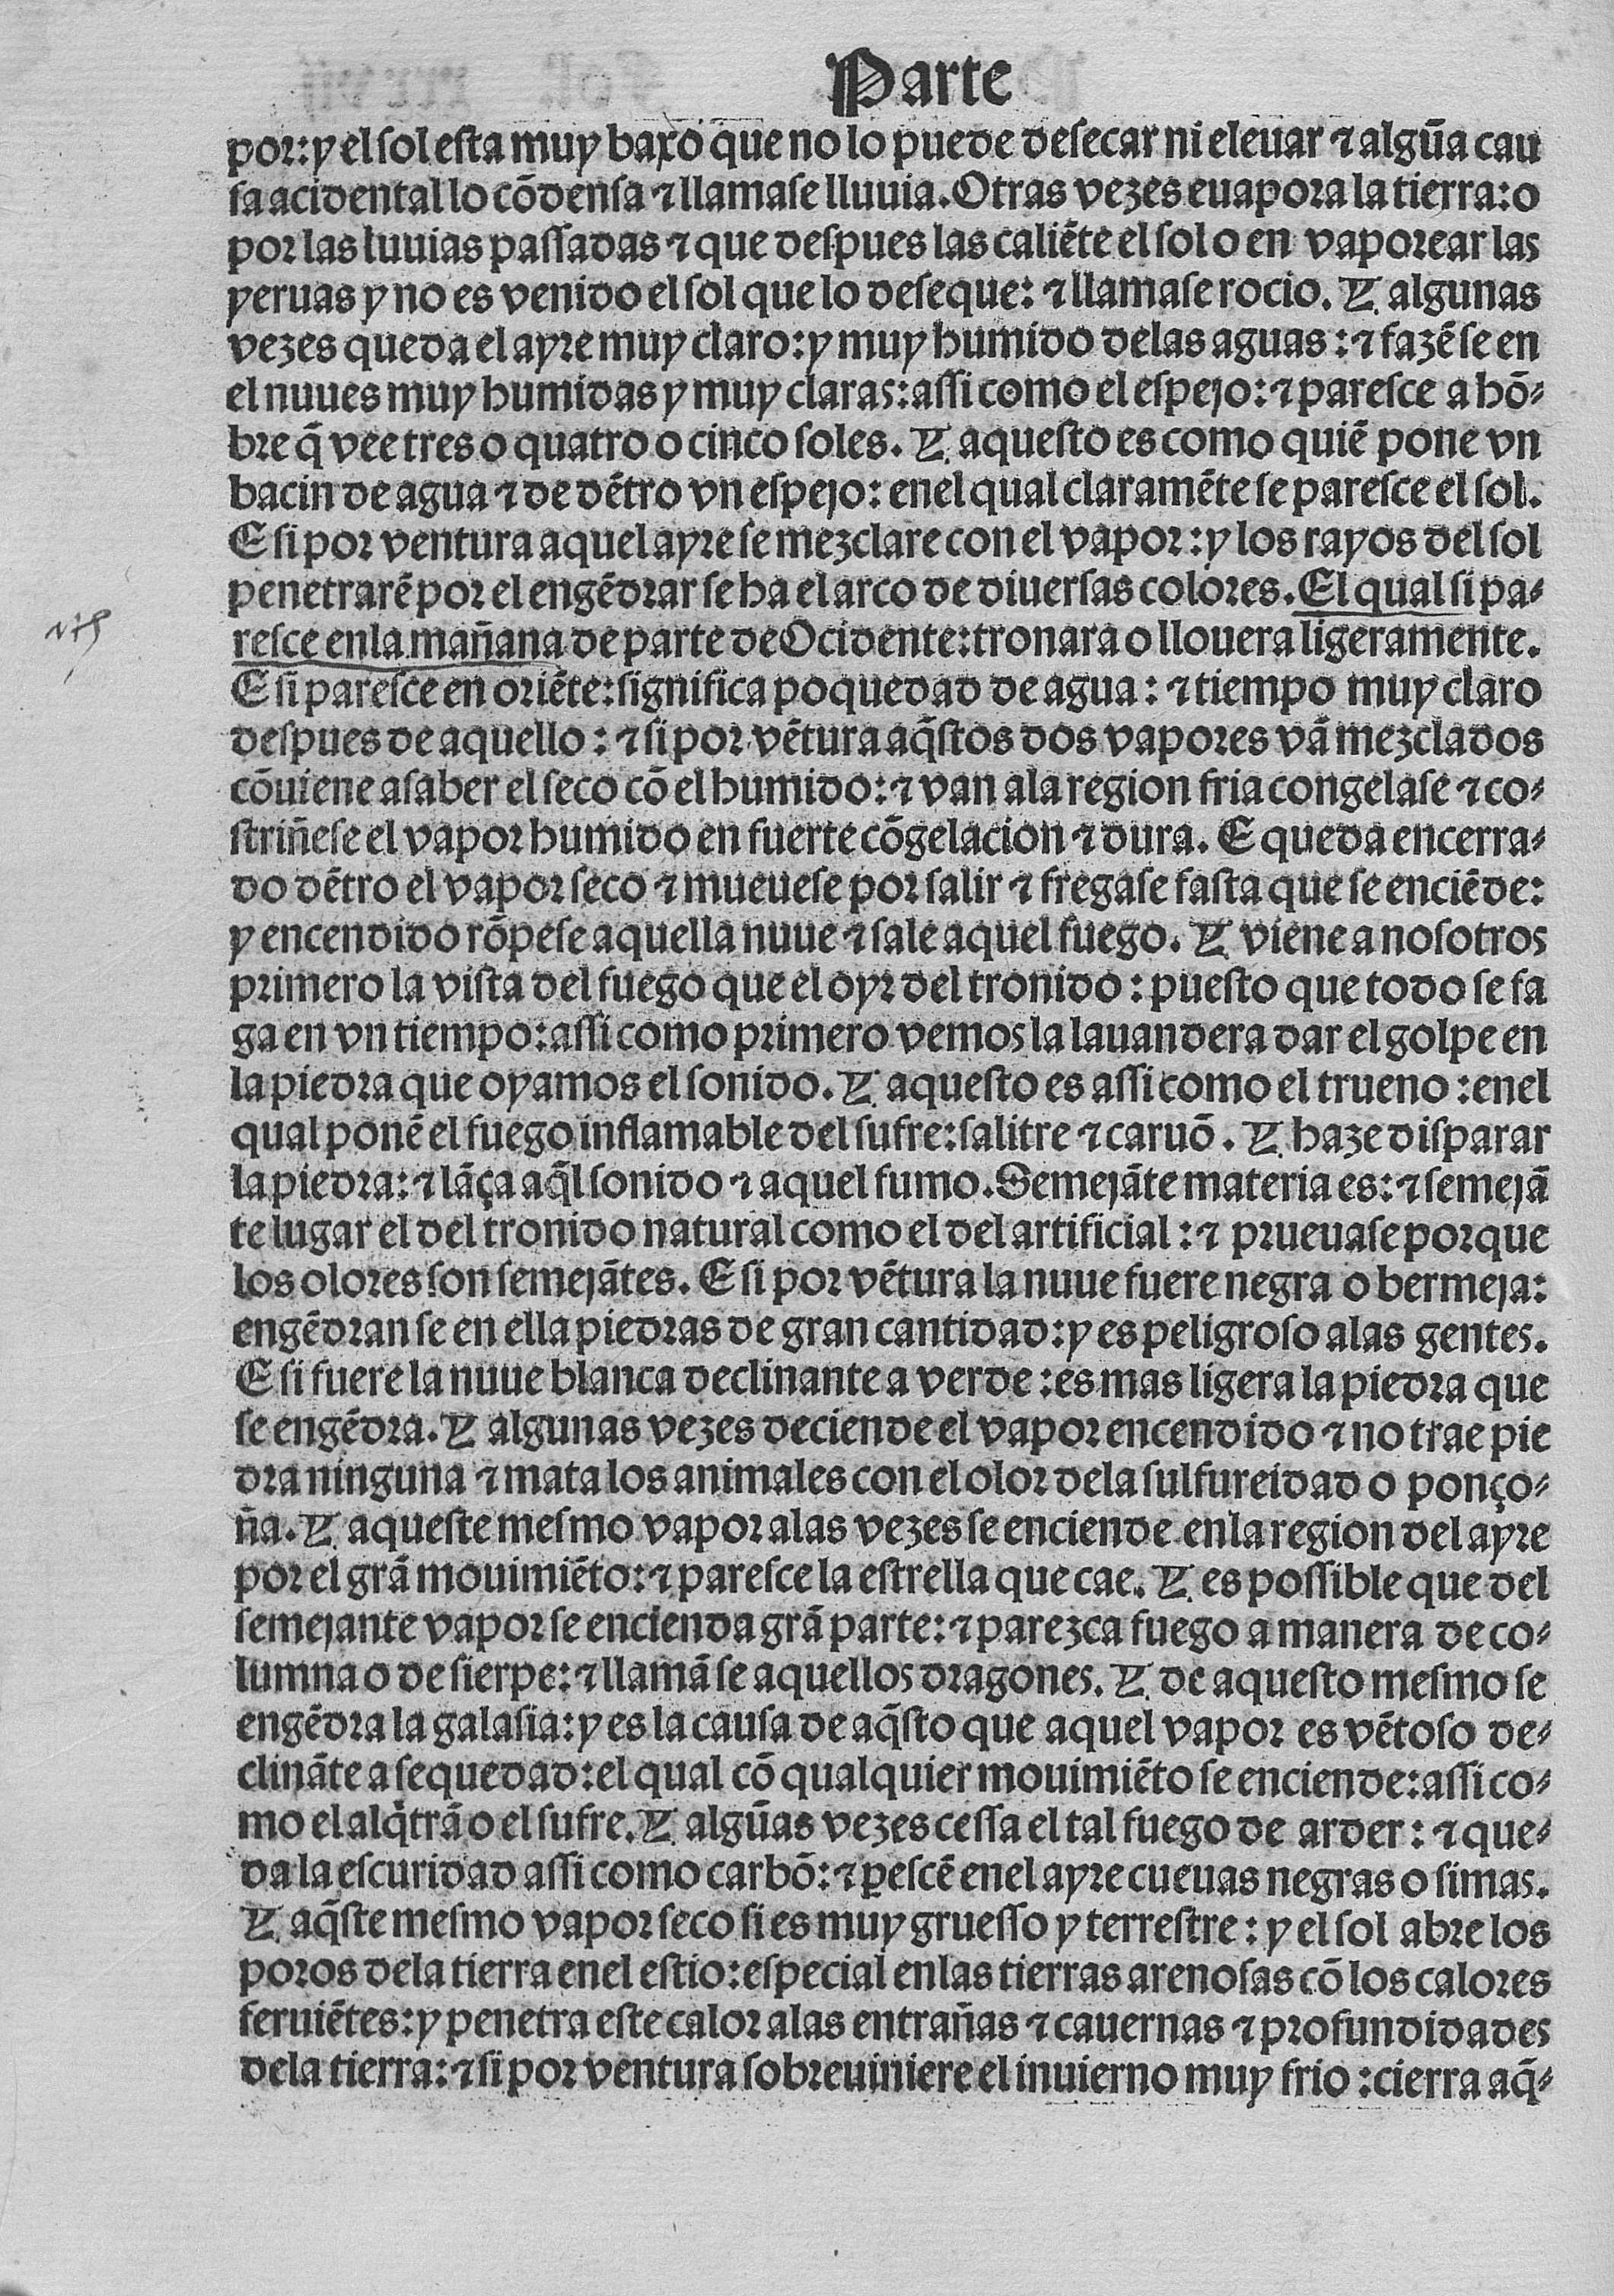 Parte
por: y el sol esta muy baxo que no lo puede desecar ni eleuar ⁊ algũa cau
sa acidental lo cõdensa ⁊ llamase lluuia. Otras vezes euapora la tierra: o
por las luuias passadas ⁊ que despues las caliẽte el sol o en vaporear las
yeruas y no es venido el sol que lo deseque: ⁊ llamase rocio. Y algunas
vezes queda el ayre muy claro: y muy humido delas aguas: ⁊ fazẽ se en
el nuues muy humidas y muy claras: assi como el espejo: ⁊ paresce a hõ-
bre q̃ vee tres o quatro o cinco soles. Y aquesto es como quiẽ pone vn
bacin de agua ⁊ de dẽtro vn espejo: enel qual claramẽte se paresce el sol.
E si por ventura aquel ayre se mezclare con el vapor: y los rayos del sol
penetrarẽ por el engẽdrar se ha el arco de diuersas colores. El qual si pa-
resce enla mañana de parte de Ocidente: tronara o llouera ligeramente.
E si paresce en oriẽte: significa poquedad de agua: ⁊ tiempo muy claro
despues de aquello: ⁊ si por vẽtura aq̃stos dos vapores vã mezclados
cõuiene asaber el seco cõ el humido: ⁊ van ala region fria congelase ⁊ co-
striñese el vapor humido en fuerte cõgelacion ⁊ dura. E queda encerra-
do dẽtro el vapor seco ⁊ mueuese por salir ⁊ fregase fasta que se enciẽde:
y encendido rõpese aquella nuue ⁊ sale aquel fuego. Y viene a nosotros
primero la vista del fuego que el oyr del tronido: puesto que todo se fa
ga en vn tiempo: assi como primero vemos la lauandera dar el golpe en
la piedra que oyamos el sonido. Y aquesto es assi como el trueno: enel
qual ponẽ el fuego inflamable del sufre: salitre ⁊ caruõ. Y haze disparar
la piedra: ⁊ lãça aq̃l sonido ⁊ aquel fumo. Semejãte materia es: ⁊ semejã
te lugar el del tronido natural como el del artificial: ⁊ prueuase porque
los olores son semejãtes. E si por vẽtura la nuue fuere negra o bermeja:
engẽdran se en ella piedras de gran cantidad: y es peligroso alas gentes.
E si fuere la nuue blanca declinante a verde: es mas ligera la piedra que
se engẽdra. Y algunas vezes deciende el vapor encendido ⁊ no trae pie
dra ninguna ⁊ mata los animales con el olor dela sulfureidad o ponço-
ña. Y aqueste mesmo vapor alas vezes se enciende enla region del ayre
por el grã mouimiẽto: ⁊ paresce la estrella que cae. Y es possible que del
semejante vapor se encienda grã parte: ⁊ parezca fuego a manera de co-
lumna o de sierpe: ⁊ llamã se aquellos dragones. Y de aquesto mesmo se
engẽdra la galasia: y es la causa de aq̃sto que aquel vapor es vẽtoso de-
clinãte a sequedad: el qual cõ qualquier mouimiẽto se enciende: assi co-
mo el alq̃trã o el sufre. Y algũas vezes cessa el tal fuego de arder: ⁊ que-
da la escuridad assi como carbõ: ⁊ ꝑescẽ enel ayre cueuas negras o simas.
Y aq̃ste mesmo vapor seco si es muy gruesso y terrestre: y el sol abre los
poros dela tierra enel estio: especial enlas tierras arenosas cõ los calores
feruiẽtes: y penetra este calor alas entrañas ⁊ cauernas ⁊ profundidades
dela tierra: ⁊ si por ventura sobreuiniere el inuierno muy frio: cierra aq̃-